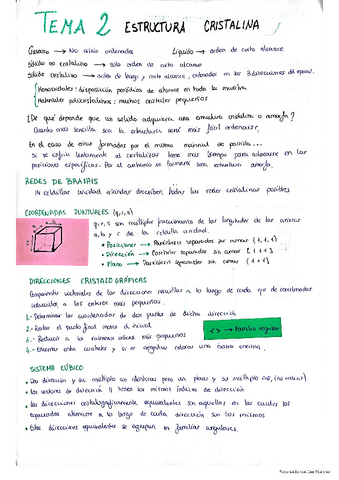 TEMA 2 ESTRUCTURA CRISTALINA
Gaseoso → No existe ordenados Líquido → orden de corto alcance
Sólido no cristalino → solo orden de corto alcance
Sólido cristalino → orden de largo y corto alcance, ordenados en las 3 direcciones del espacio.
Monocristales: disposición periódica de átomos en toda la muestra
Materiales policristalinos: muchos cristales pequeños
¿De qué depende que un sólido adquiera una estructura cristalina o amorfa?
Cuanto más sencilla sea la estructura será más fácil ordenarse.
En el caso de estar formados por el mismo material de partida...
si se enfría lentamente al cristalizar tiene más tiempo para colocarse en las
posiciones específicas. Por el contrario se formará una estructura amorfa.
REDES DE BRAVAIS
14 celdillas unidad, describen todas las redes cristalinas posibles
COORDENADAS PUNTUALES (q, r, s)
q, r, s son múltiplos fraccionarios de las longitudes de las aristas
a, b y c de la celdilla unidad.
• Posiciones → Paréntesis separados sin comas (1, 1, 1)
• Dirección → Corchetes separados sin comas [1 1 1]
• Plano → Paréntesis separados sin comas (1 1 1)
DIRECCIONES CRISTALOGRÁFICAS
Componentes vectoriales de las direcciones resueltas a lo largo de cada eje de coordenadas
reducidas a los enteros más pequeños.
1.- Determinar las coordenadas de dos puntos de dicha dirección
2.- Restar el punto final menos el inicial
3.- Reducir a los números enteros más pequeños
<> → Familia
4.- Encerrar entre corchetes y si es negativo colocar una barra encima.
SISTEMA CÚBICO
• Una dirección y su múltiplo es idéntica pero un plano y su múltiplo no,
• Los vectores de dirección tienen los mismos índices de dirección
• Las direcciones cristalográficamente equivalentes son aquellas en las cuales los
espaciados atómicos a lo largo de cada dirección son los mismos
• Estas direcciones equivalentes se agrupan en familias angulares.